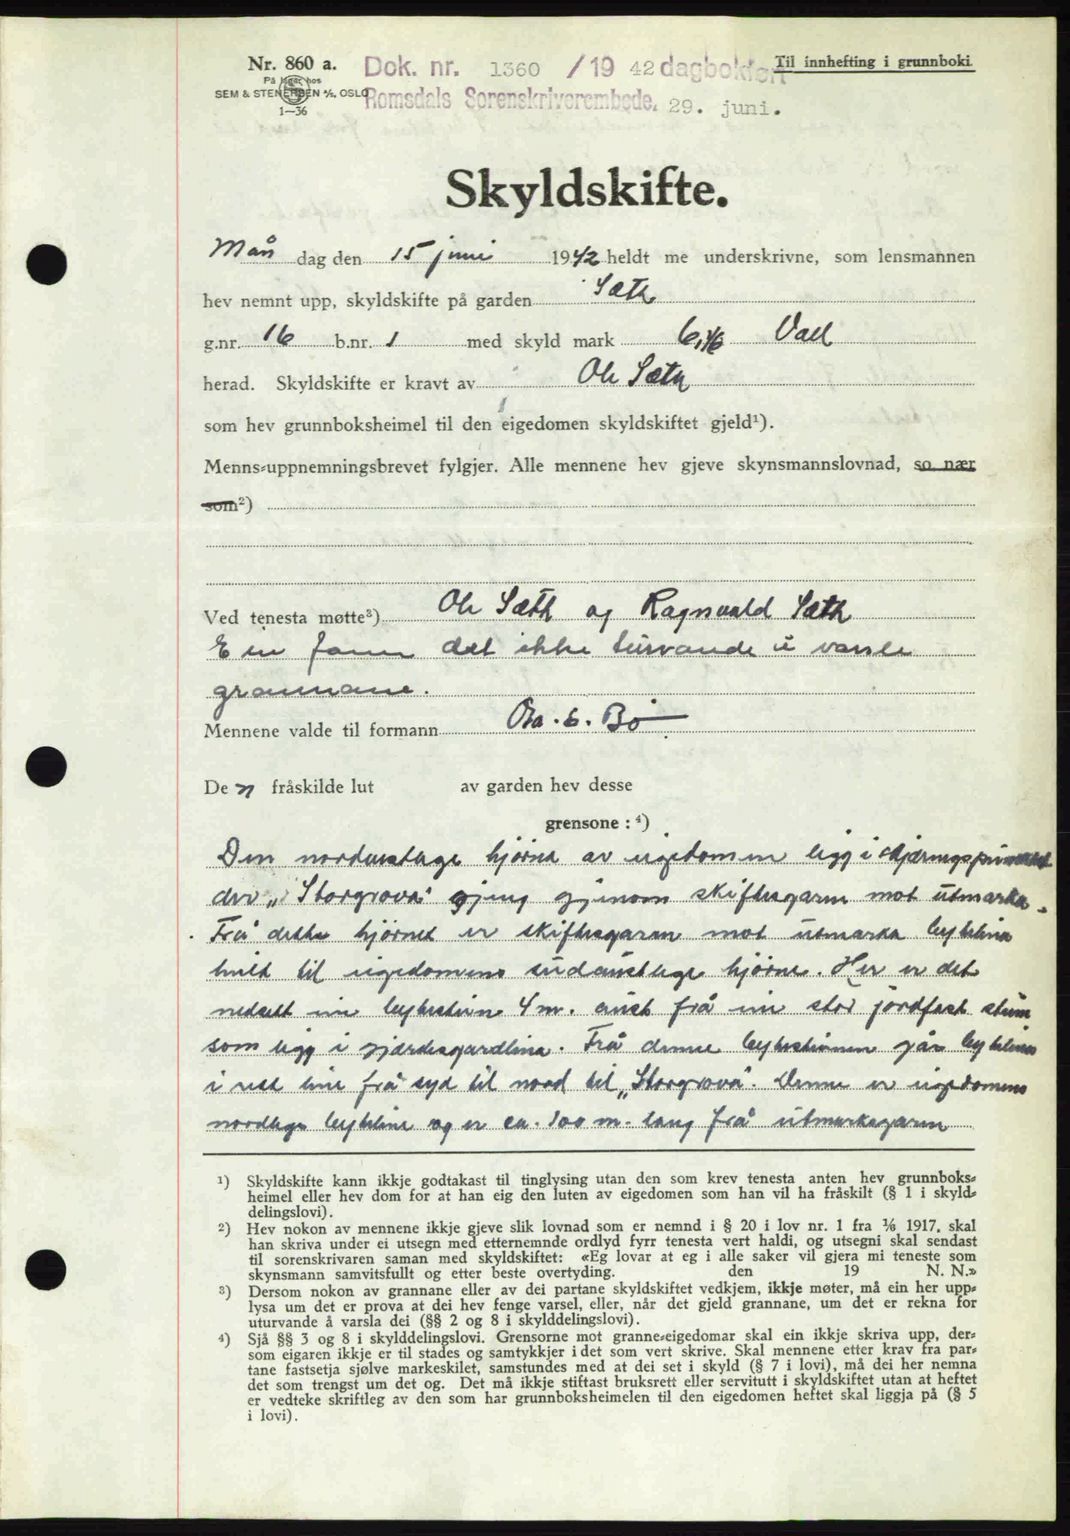 Nr. 860 a.
På lager hos
SEM & STENERSEN A/S, OSLO
1—36
Dok. nr. 1360 /19 42 dagbokført
Romsdals Sorenskriverembede, 29. juni.
Til innhefting i grunnboki
Skyldskifte.
Mån dag den 15 juni 1942 heldt me underskrivne, som lensmannen
hev nemnt upp, skyldskifte på garden Sæth
g.nr. 16 b.nr. 1 med skyld mark 6,46 Voll
herad. Skyldskifte er kravt av Ole Sæth
som hev grunnboksheimel til den eigedomen skyldskiftet gjeld¹).
Menns-uppnemningsbrevet fylgjer. Alle mennene hev gjeve skynsmannslovnad, so nær
som²)
Ved tenesta møtte³) Ole Sæth og Ragnvald Sæth
Ein fann det ikke turvande å varsle
grannane.
Mennene valde til formann Ola. E. Bø
De n fråskilde lut av garden hev desse
grensone : ⁴)
Den nordvestlege hjørne av eigedomen ligg i skjæringspunktet
der „Storgrova" gjeng gjenom skiftesgarn mot utmarka.
Frå dette hjørnet er skiftesgaren mot utmarka bytelina
heilt til eigedomens sudaustlege hjørne. Her er det
nedsett ein bytestein 4 m. aust frå ein stor jordfast stein
som ligg i gjærdesgardlina. Frå denne bytesteinen går bytelina
i rett line frå syd til nord til „Storgrova". Denne er eigedomens
nordlege byteline og er ca. 100 m. lang frå utmarksgaren
¹) Skyldskifte kann ikkje godtakast til tinglysing utan den som krev tenesta anten hev grunnboks-
heimel eller hev dom for at han eig den luten av eigedomen som han vil ha fråskilt (§ 1 i skyld-
delingslovi).
²) Hev nokon av mennene ikkje gjeve slik lovnad som er nemnd i § 20 i lov nr. 1 fra ⅙ 1917, skal
han skriva under ei utsegn med etternemnde ordlyd fyrr tenesta vert haldi, og utsegni skal sendast
til sorenskrivaren saman med skyldskiftet: «Eg lovar at eg i alle saker vil gjera mi teneste som
skynsmann samvitsfullt og etter beste overtyding. den 19 N. N.»
³) Dersom nokon av grannane eller av dei partane skyldskiftet vedkjem, ikkje møter, må ein her upp-
lysa um det er prova at dei hev fenge varsel, eller, når det gjeld grannane, um det er rekna for
uturvande å varsla dei (§§ 2 og 8 i skylddelingslovi).
⁴) Sjå §§ 3 og 8 i skylddelingslovi. Grensorne mot granne-eigedomar skal ein ikkje skriva upp, der-
som eigaren ikkje er til stades og samtykkjer i det som vert skrive. Skal mennene etter krav fra par-
tane fastsetja sjølve markeskilet, samstundes med at dei set i skyld (§ 7 i lovi), må dei her nemna
det som trengst um det og. Det må ikkje stiftast bruksrett eller servitutt i skyldskiftet utan at heftet
er vedteke skriftleg av den som har grunnboksheimelen til den eigedomen heftet skal liggja på (§ 5
i lovi).